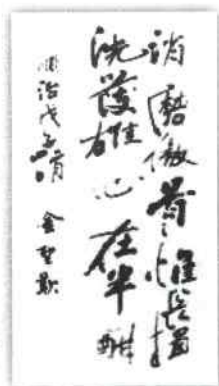 消磨傲骨惟長揖
洗發雄心在半酣
順治戊子 金聖歎